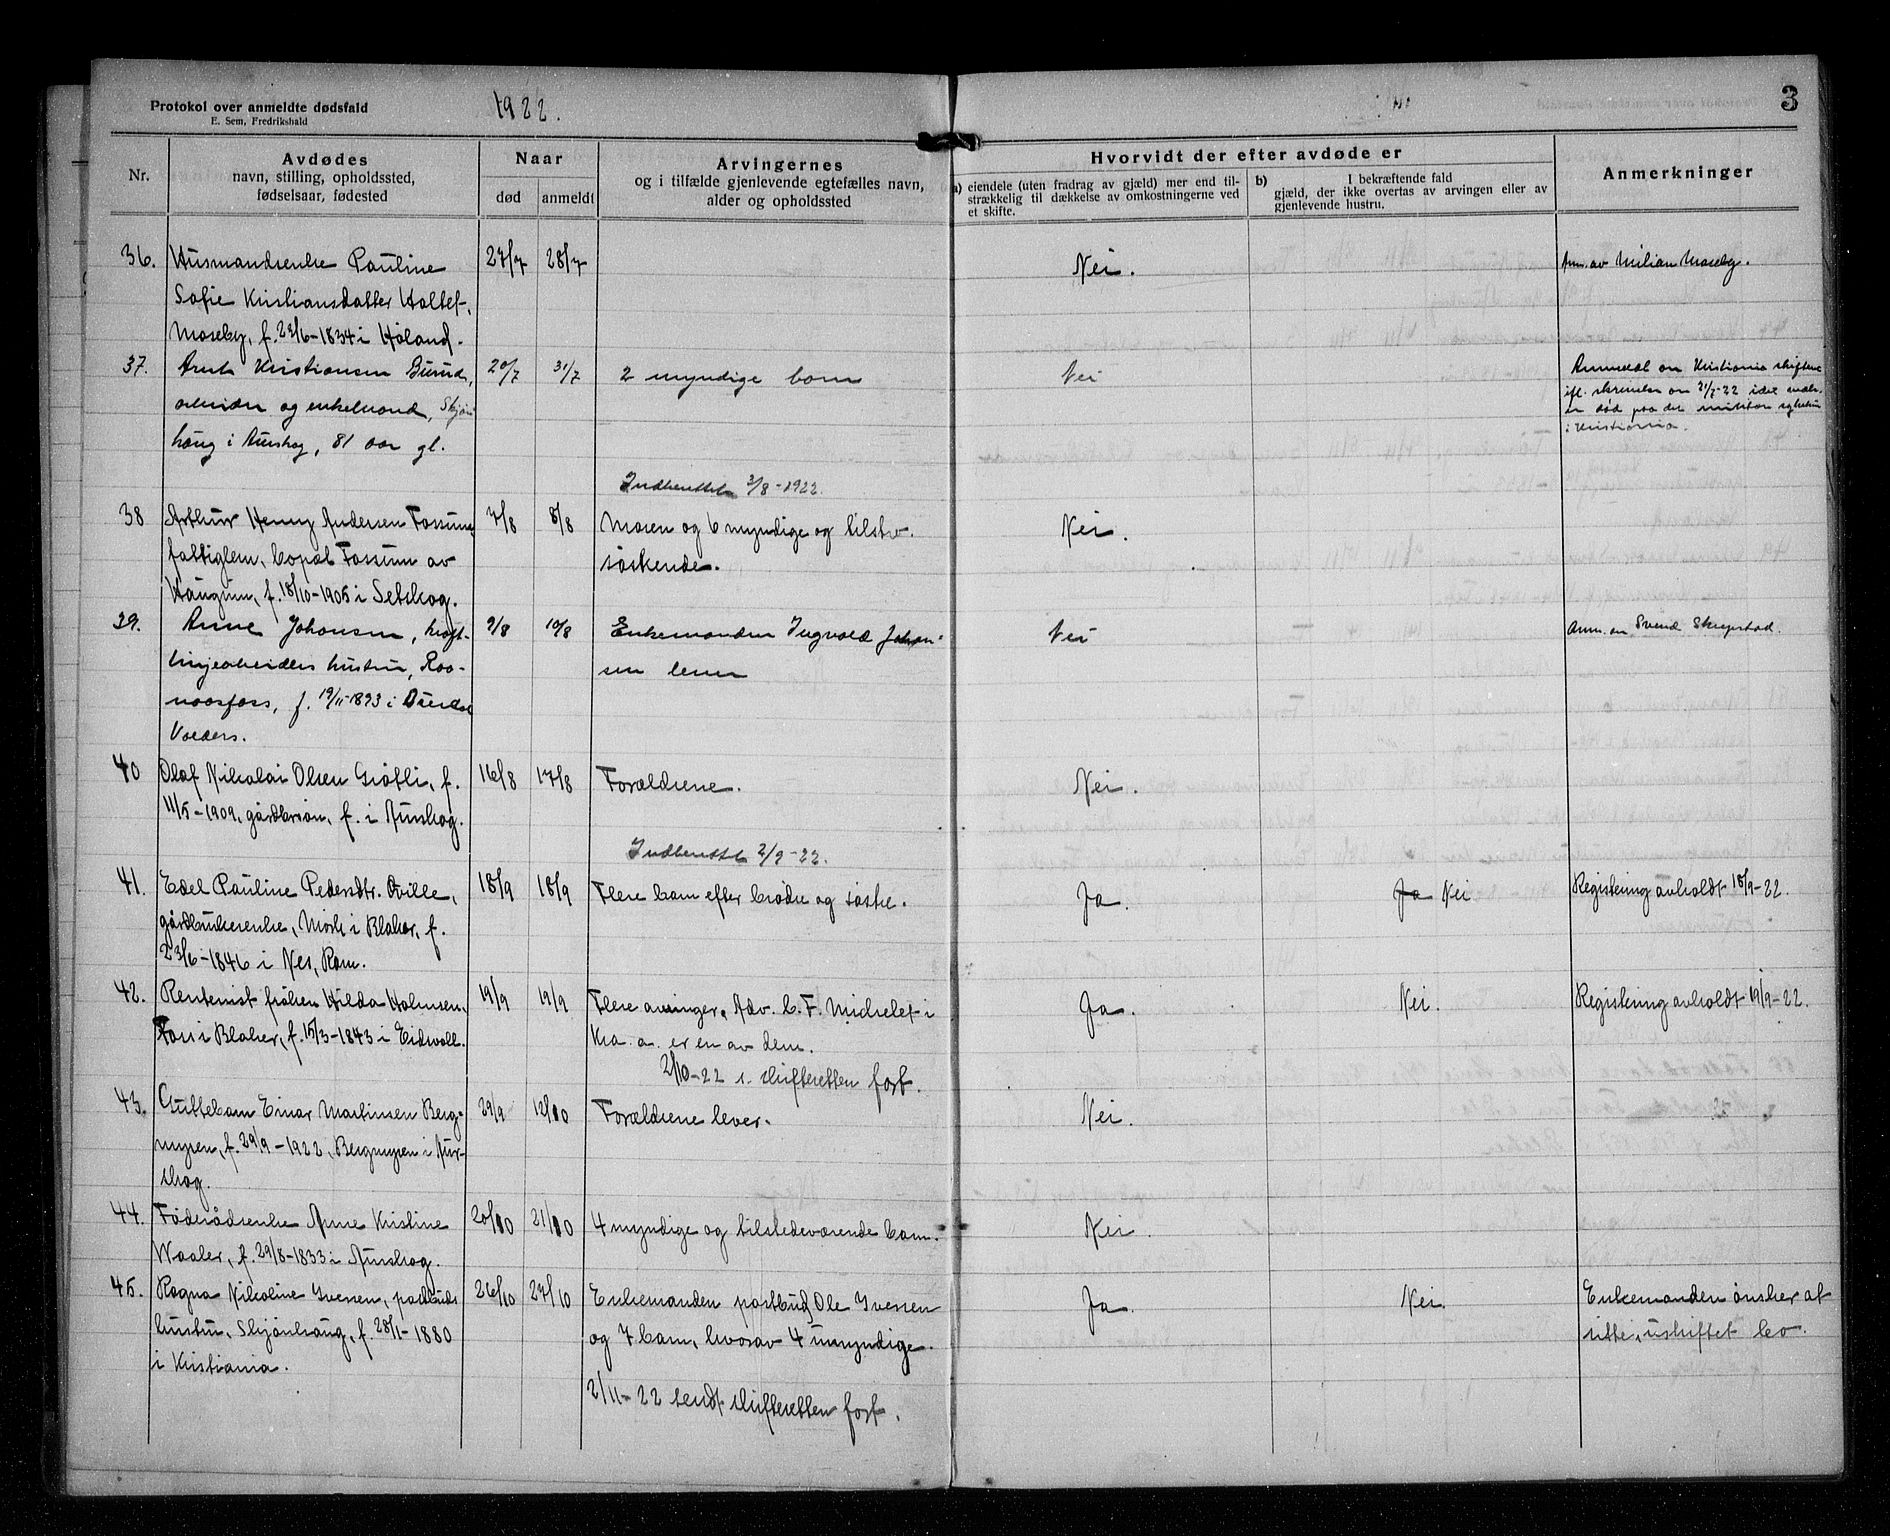 Protokol over anmeldte dødsfald
E. Sem, Fredrikshald
1922.
3
Nr.
Avdødes
navn, stilling, opholdssted,
fødselsaar, fødested
Naar
død
anmeldt
Arvingernes
og i tilfælde gjenlevende egtefælles navn,
alder og opholdssted
Hvorvidt der efter avdøde er
a) eiendele (uten fradrag av gjæld) mer end til-
strækkelig til dækkelse av omkostningerne ved
et skifte.
b) I bekræftende fald
gjæld, der ikke overtas av arvingen eller av
gjenlevende hustru.
Anmerkninger
36. Husmandsenke Pauline 27/7 28/7 Nei. Anm. av Milian Moseby.
Sofie Kristiansdatter Holtet-
Moseby, f. 23/6-1834 i Høland.
37. Kristiansen 20/7 31/7 2 myndige barn Nei
arbeider og enkemand, Skjøn
haug i Aurskog, 81 aar gl.
er død paa det militære
i Kristiania.
Indberettet 3/8-1922.
38 Arthur Henry Andersen Fossum, 7/8 8/8 Moren og 6 myndige og tilstv. Nei.
fattiglem, Fossum av søskende.
Haugrim, f. 18/10-1905 i Setskog.
39. Anne Johansen, kraft- 9/8 10/8 Enkemanden Ingvald Johan- Nei Anm. av Svend
linjearbeiders hustru, Raa- sen lever
naasfoss, f. 19/11-1893 i
Valders.
40 Olaf Nikolai Olsen Grøtli, f. 16/8 17/8 Forældrene. Nei.
11/5-1909, gårdbrsøn, f. i Aurskog.
Indberettet 2/9-22.
41. Edel Pauline Pedersdtr. Oville, 18/9 18/9 Flere barn efter brødre og søstre. Ja. Ja Nei Registrering avholdt 18/9-22.
gårdbrukerenke, Mork i Blaker, f.
23/6-1846 i Nes, Rom.
42. Rentenist frøken Hilda Holmsen, 19/9 19/9 Flere arvinger, Adv. C. F. Michelet i Ja. Nei. Registrering avholdt 19/9-22.
Foss i Blaker, f. 15/3-1843 i Eidsvoll. Kra. a. er en av dem.
2/10-22 s. skifteretten fort.
43. Guttebarn Einar Martinsen Berg- 29/9 12/10 Forældrene lever. Nei.
myren, f. 29/9-1922, Bergmyren i Aur-
skog.
44. Føderådsenke Anne Kristine 20/10 21/10 4 myndige og tilstedeværende barn. Nei.
Waaler, f. 29/8-1833 i Aurskog.
45. Ragna Nikoline Iversen, postbuds 26/10 27/10 Enkemanden postbud Ole Iversen Ja. Nei. Enkemanden ønsker at
hustru, Skjønhaug, f. 28/1-1880 og 7 barn, hvorav 4 umyndige. sitte i uskiftet bo.
i Kristiania.
2/11-22 sendt skifteretten fort.